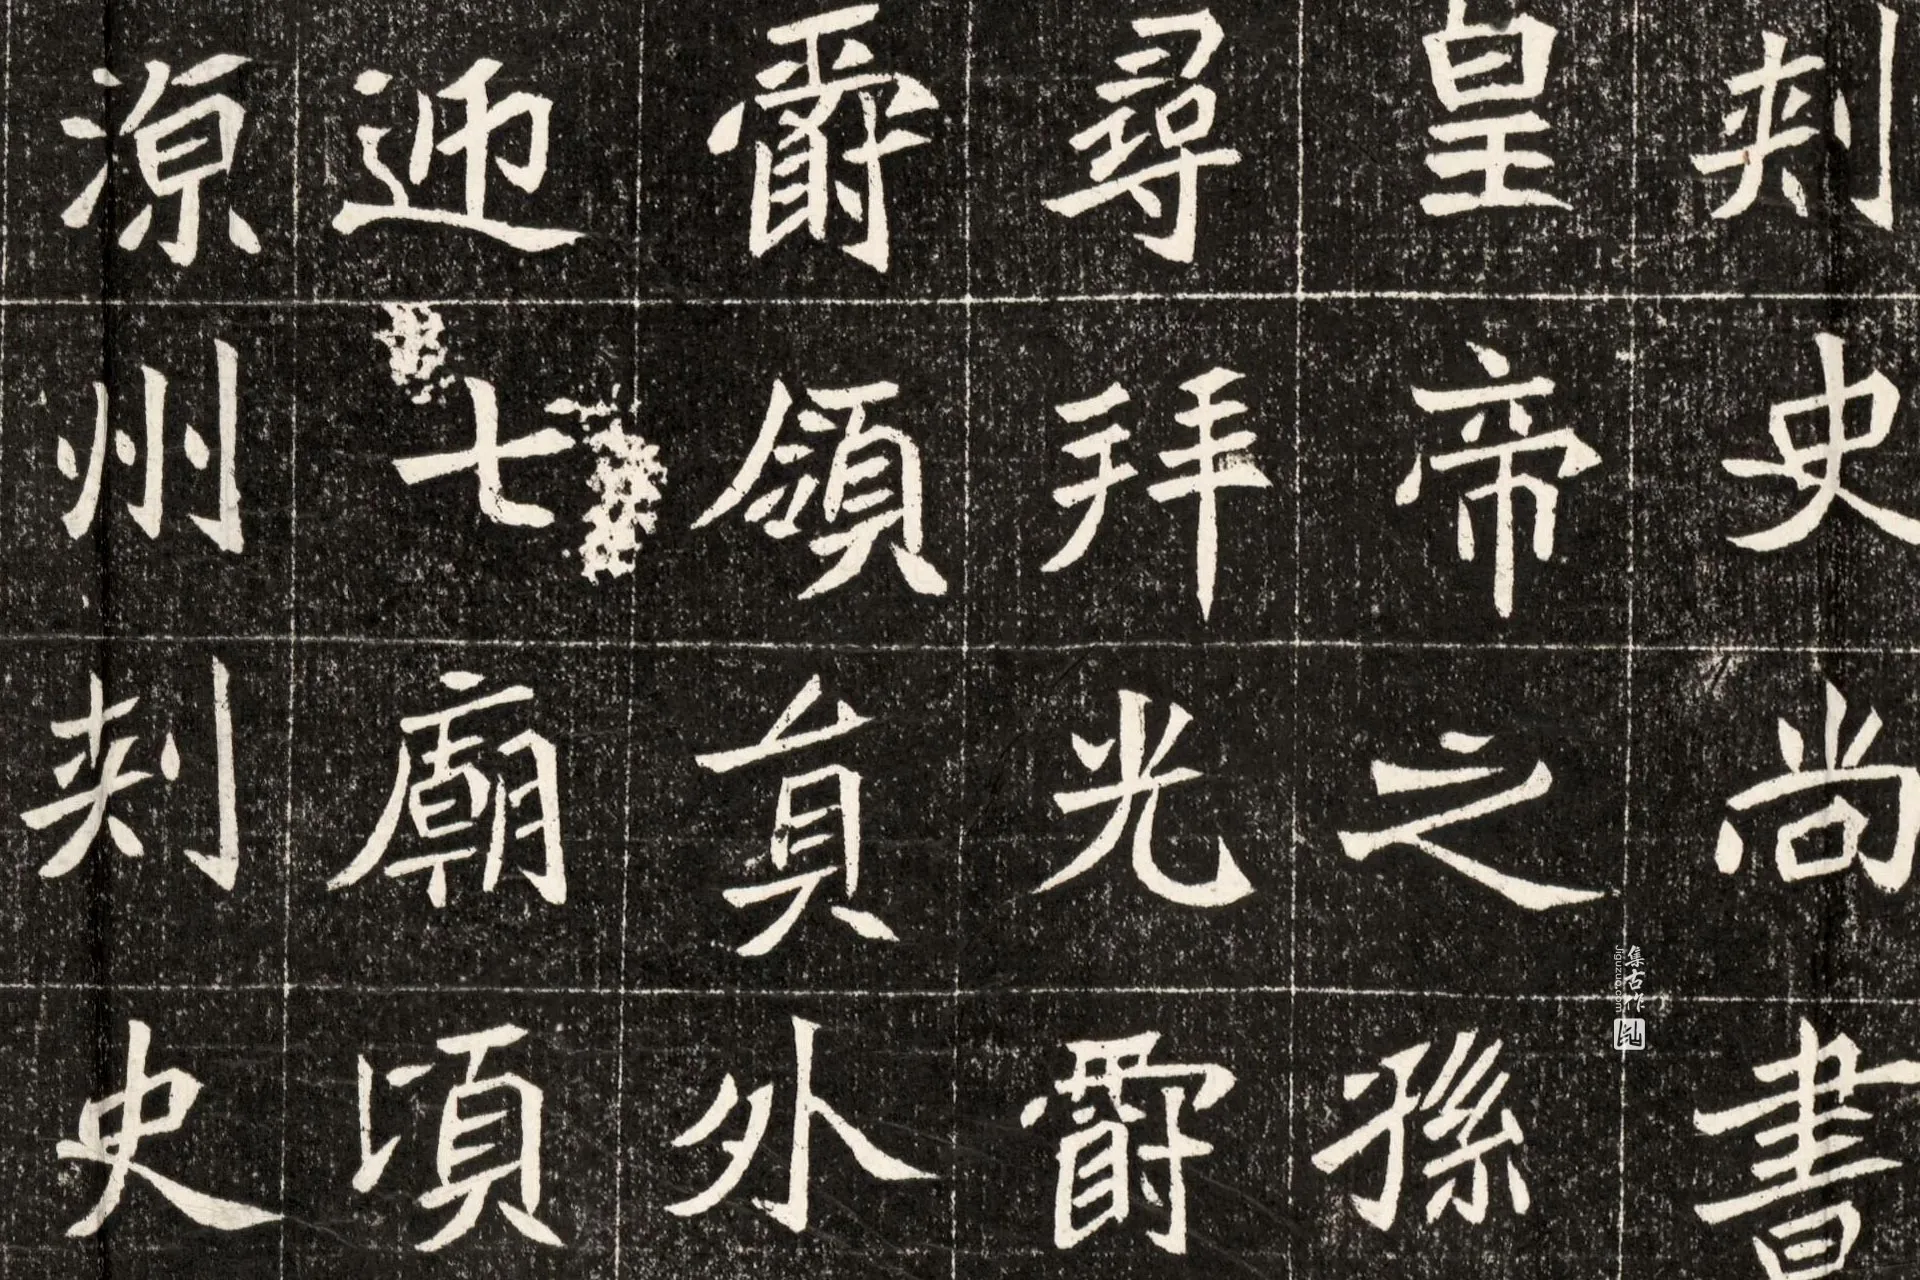 刾史尚書
皇帝之孫
尋拜光爵
爵領貟外
逓七廟頃
源州刾史
集古作
Jiguzuo.com